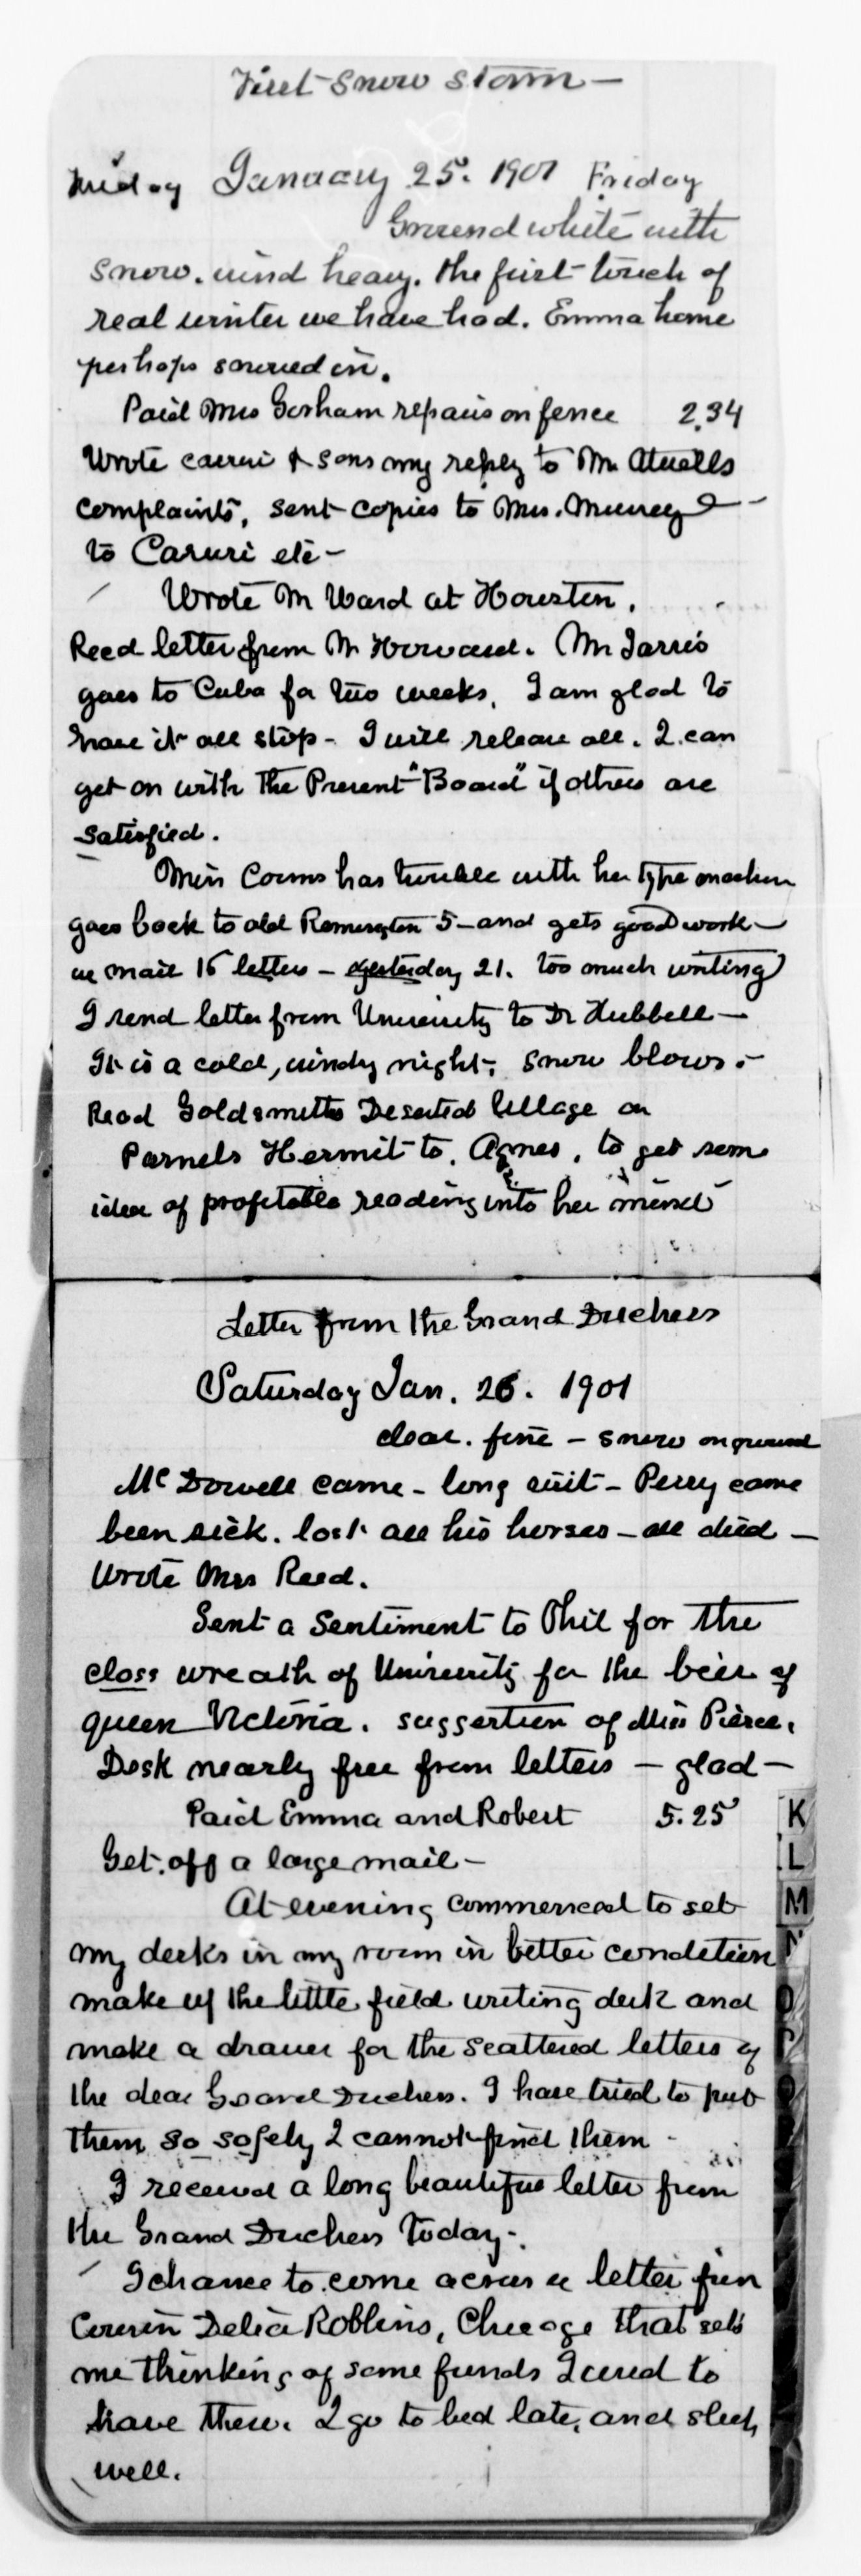 First Snow storm —
Friday January 25. 1901 Friday
Ground white with
snow. wind heavy. the first touch of
real winter we have had. Emma home
perhaps snowed in.
Paid Mrs Gorham repairs on fence 2.34
Wrote & Sons my reply to Mr Atwells
complaints, sent copies to Mrs.
to etc —
Wrote Mr Ward at Houston.
Recd letter from Mr Howard. Mr
goes to Cuba for two weeks, I am glad to
have it all stop - I will release all. I can
get on with the Present "Board" if others are
satisfied.
Miss Coums has trouble with her type machine
goes back to old Remington 5 - and gets good work —
we mail 15 letters - yesterday 21. too much writing
I send letter from University to Dr Hubbell —
It is a cold, windy night, snow blows. -
Read Goldsmiths Deserted Village or
Parnels Hermit to. Agnes, to get some
idea of profitable reading into her mind
Letter from the Grand Duchess
Saturday Jan. 26. 1901
clear. fine - snow on ground
McDowell came - long visit - Perry came
been sick. lost all his horses - all died —
Wrote Mrs Reed.
Sent a Sentiment to Phil for the
class wreath of University for the bier of
queen Victoria. suggestion of Miss Pierce.
Desk nearly free from letters - glad —
Paid Emma and Robert 5.25
Get. off a large mail -
At evening commenced to set
my desks in my room in better condition
make up the little field writing desk and
make a drawer for the scattered letters of
the dear Grand Duchess. I have tried to put
them so safely I cannot find them -
I received a long beautiful letter from
the Grand Duchess today -.
I chance to come across a letter from
Cousin Delia Robbins, Chicago that sets
me thinking of some funds I used to
have there. I go to bed late, and sleep
well.
K
L
M
N
O
P
Q